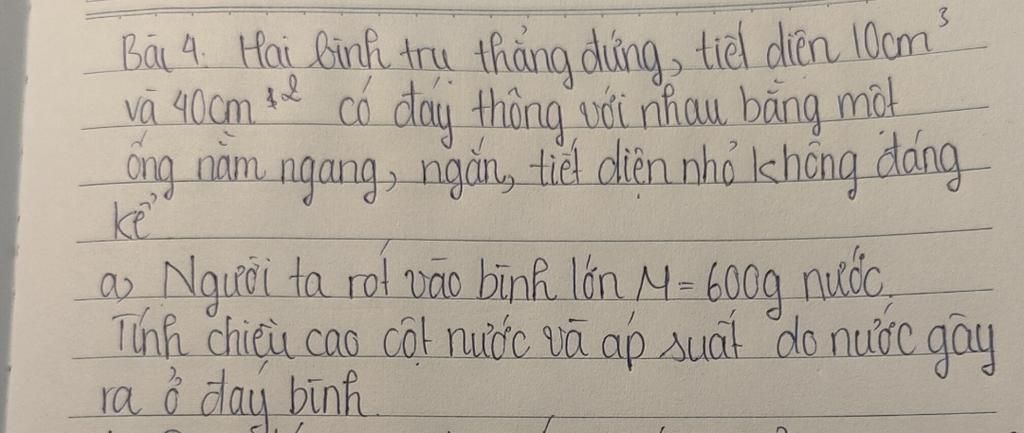 Bài 4. Hai bình trụ thẳng đứng, tiết diện 10cm³
và 40cm² có đáy thông với nhau bằng một
ống nằm ngang, ngắn, tiết diện nhỏ không đáng
kể
a) Người ta rót vào bình lớn M = 600g nước.
Tính chiều cao cột nước và áp suất do nước gây
ra ở đáy bình